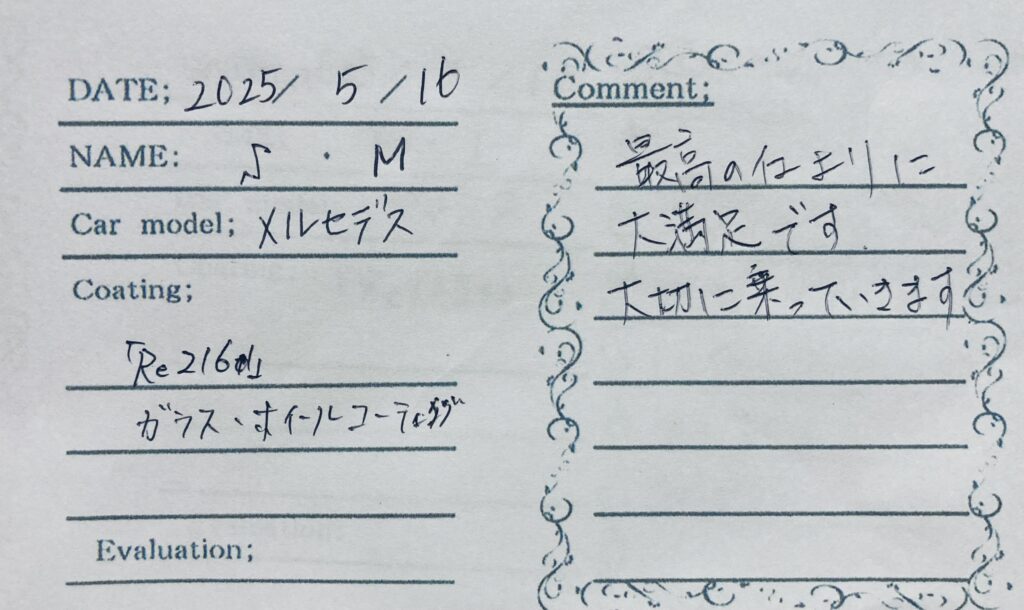 DATE; 2025/ 5 /16
NAME: S ・ M
Car model; メルセデス
Coating;
「Re216
ガラス・ホイールコーティング
Evaluation;
Comment;
最高の仕上りに
大満足です.
大切に乗っていきます